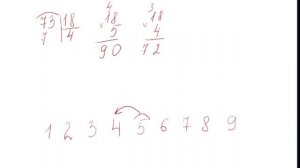 4 3
73 18 × 18 × 18
7 4 5 4
90 72
1 2 3 4 5 6 7 8 9